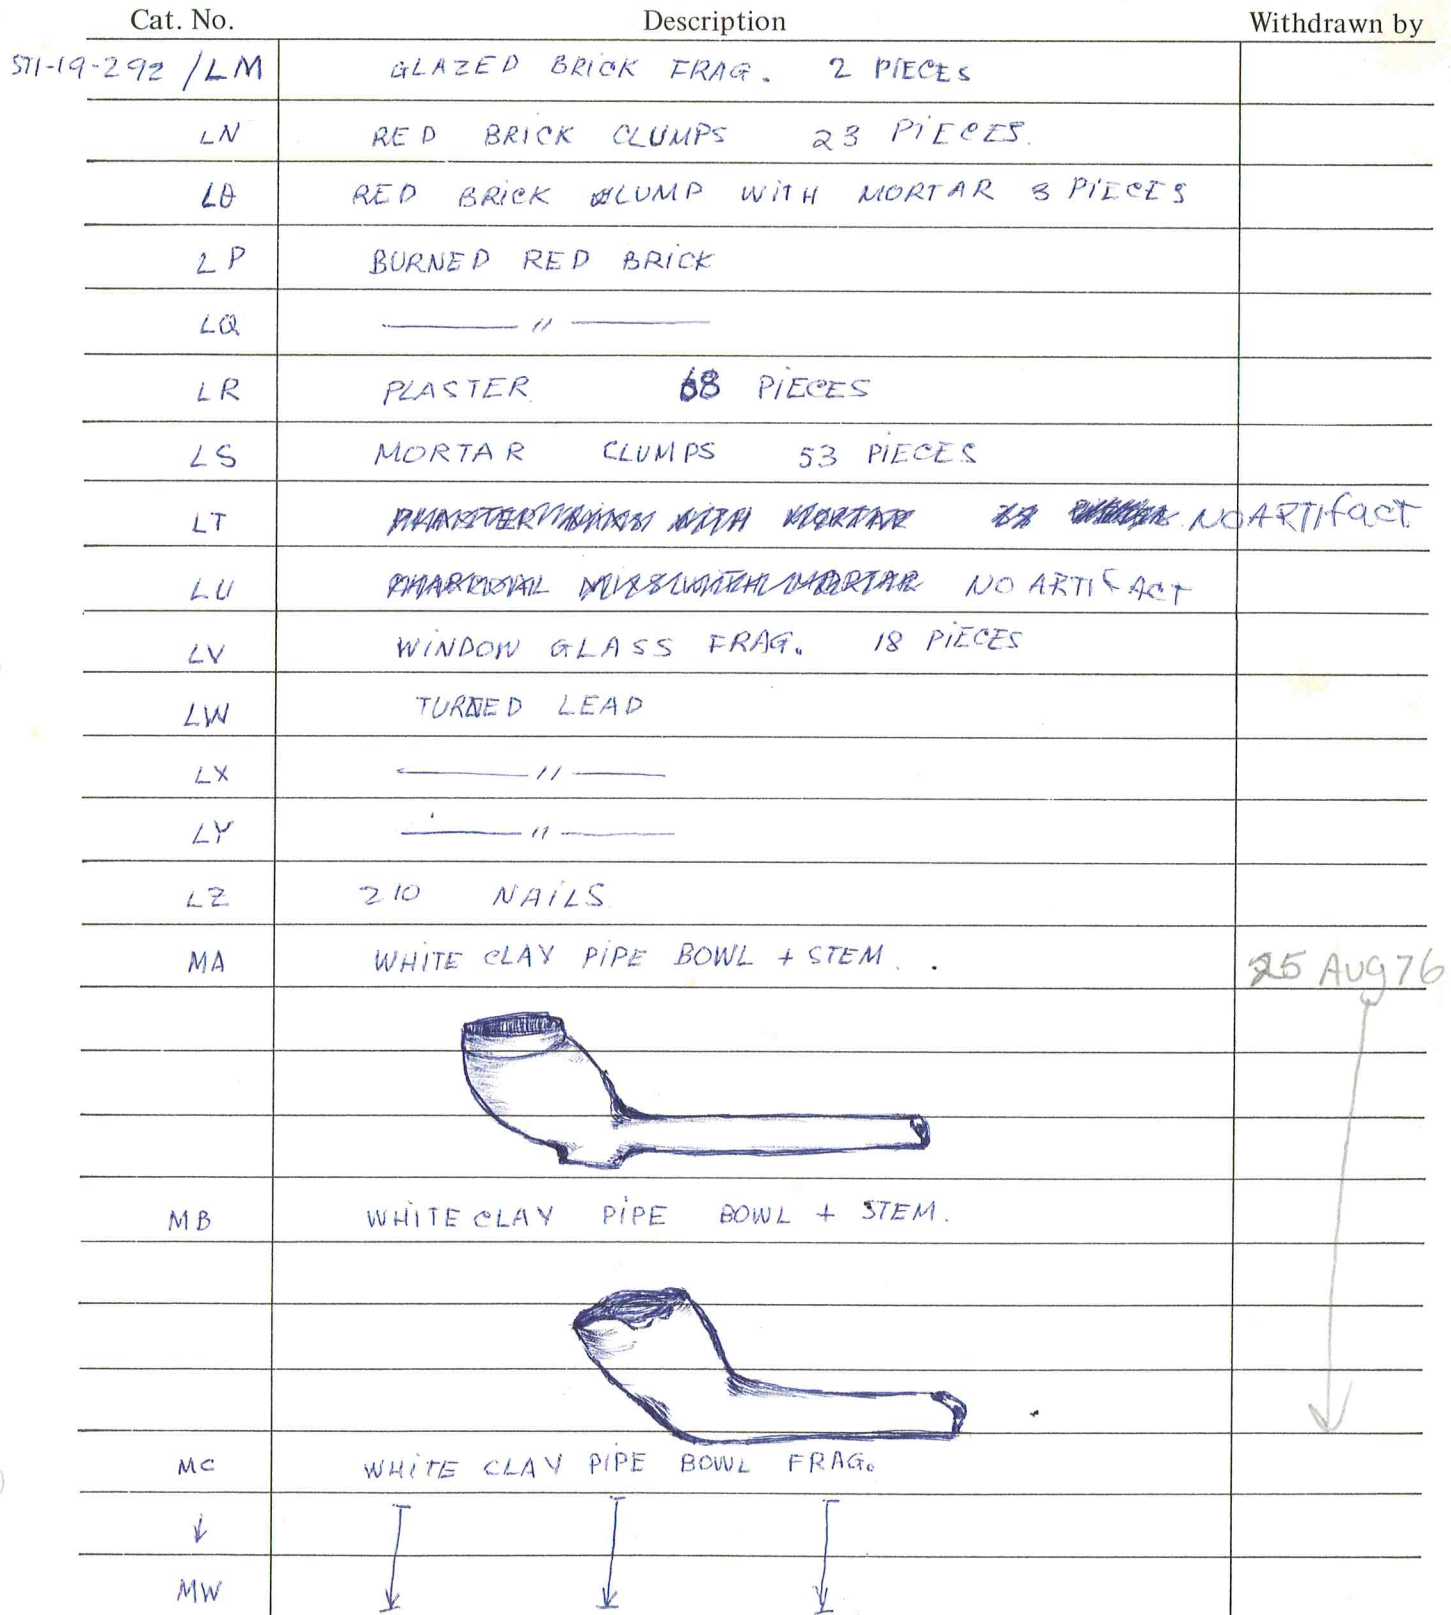 Cat. No. Description Withdrawn by
ST1-19-292 /LM GLAZED BRICK FRAG. 2 PIECES
LN RED BRICK CLUMPS 23 PIECES.
LO RED BRICK CLUMP WITH MORTAR 3 PIECES
LP BURNED RED BRICK
LQ —— " ——
LR PLASTER 68 PIECES
LS MORTAR CLUMPS 53 PIECES
LT WITH MORTAR NO ARTIFACT
LU MORTAR NO ARTIFACT
LV WINDOW GLASS FRAG. 18 PIECES
LW TURNED LEAD
LX —— " ——
LY —— " ——
LZ 210 NAILS
MA WHITE CLAY PIPE BOWL + STEM. 25 AUG 76
MB WHITE CLAY PIPE BOWL + STEM.
MC WHITE CLAY PIPE BOWL FRAG.
↓ ↓ ↓ ↓
MW